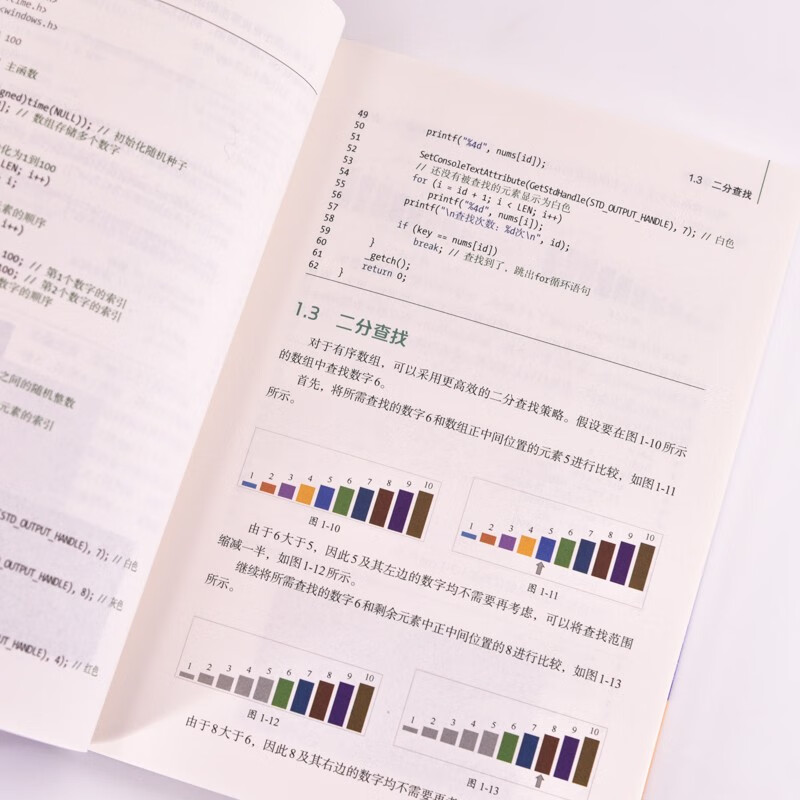 time.h>
windows.h>
100
主函数
gned)time(NULL)); // 初始化随机种子
]; // 数组存储多个数字
化为1到100
LEN; i++)
i;
素的顺序
i++)
100; // 第1个数字的索引
100; // 第2个数字的索引
数字的顺序
之间的随机整数
元素的索引
STD_OUTPUT_HANDLE), 7); // 白色
OUTPUT_HANDLE), 8); // 灰色
UT_HANDLE), 4); // 红色
1.3 二分查找
49
50 printf("%4d", nums[id]);
51
52 SetConsoleTextAttribute(GetStdHandle(STD_OUTPUT_HANDLE), 7); // 白色
53 // 还没有被查找的元素显示为白色
54 for (i = id + 1; i < LEN; i++)
55 printf("%4d", nums[i]);
56 printf("\n查找次数：%d次\n", id);
57
58 if (key == nums[id])
59 break; // 查找到了，跳出for循环语句
60 }
61 _getch();
62 return 0;
}
1.3 二分查找
对于有序数组，可以采用更高效的二分查找策略。假设要在图1-10所示
的数组中查找数字6。
首先，将所需查找的数字6和数组正中间位置的元素5进行比较，如图1-11
所示。
1 2 3 4 5 6 7 8 9 10
图 1-10
1 2 3 4 5 6 7 8 9 10
图 1-11
由于6大于5，因此5及其左边的数字均不需要再考虑，可以将查找范围
缩减一半，如图1-12所示。
继续将所需查找的数字6和剩余元素中正中间位置的8进行比较，如图1-13
所示。
1 2 3 4 5 6 7 8 9 10
图 1-12
1 2 3 4 5 6 7 8 9 10
图 1-13
由于8大于6，因此8及其右边的数字均不需要再考